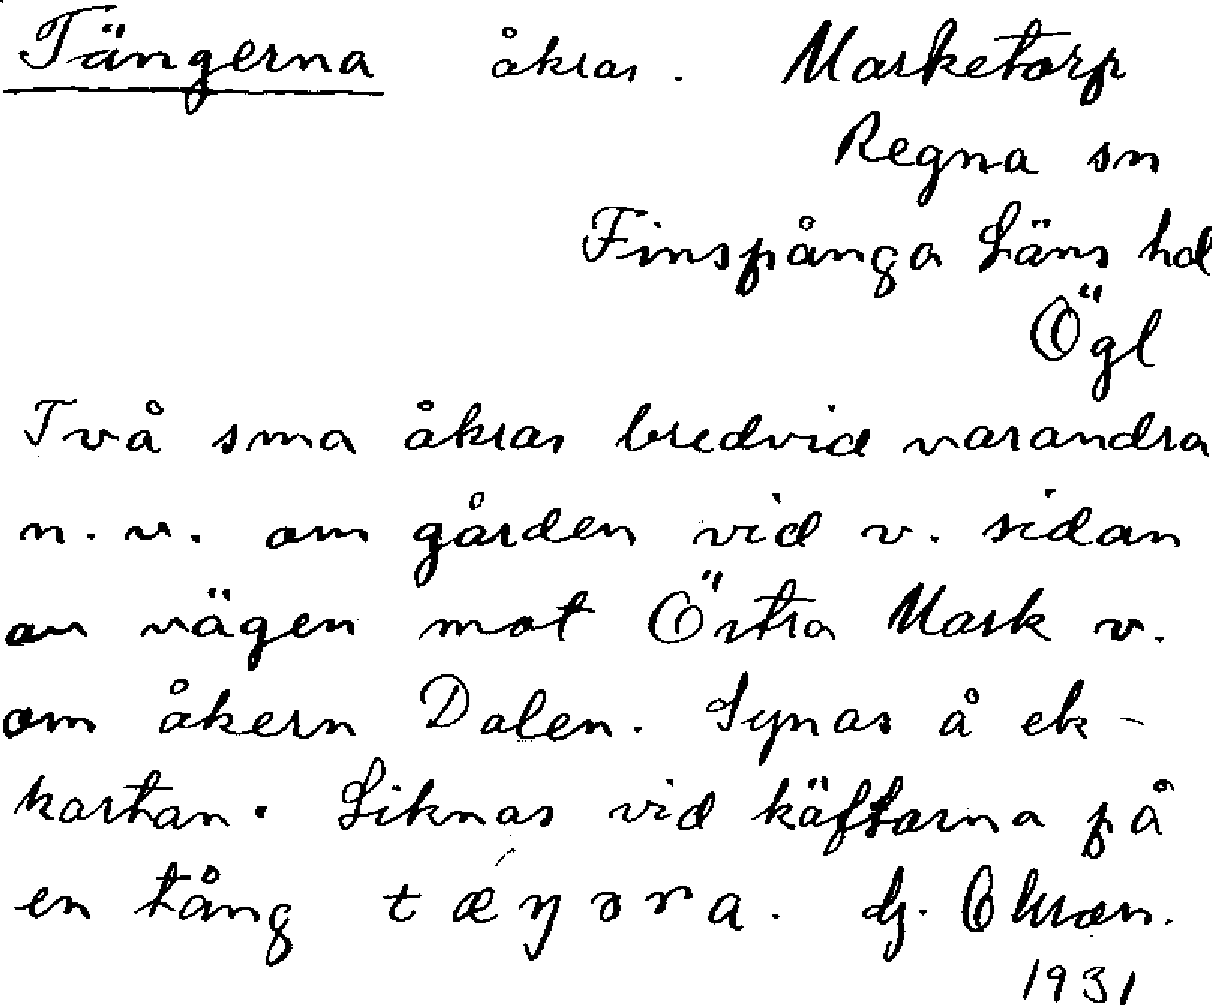 Tängerna åkrar. Marketorp
Regna sn
Finspånga Läns hd
Ögl
Två sma åkrar bredvid varandra
n. v. om gården vid v. sidan
av vägen mot Östra Mark v.
om åkern Dalen. Synas å ek-
kartan. Liknas vid käftarna på
en tång tæŋɔra. Hj.
1931